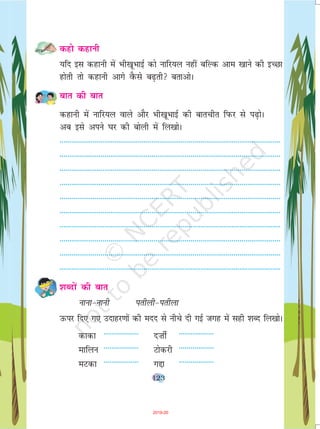 कहो कहानी
यदि इस कहानी में भीखूभाई को नारियल नहीं बल्कि आम खाने की इच्छा
होती तो कहानी आगे कैसे बढ़ती? बताओ।
बात की बात
कहानी में नारियल वाले और भीखूभाई की बातचीत फिर से पढ़ो।
अब इसे अपने घर की बोली में लिखो।
शब्दों की बात
नाना-नानी पतीली-पतीला
ऊपर दिए गए उदाहरणों की मदद से नीचे दी गई जगह में सही शब्द लिखो।
काका दर्जी
मालिन टोकरी
मटका गद्दा
123
© NCERT
not to be republished
2019-20